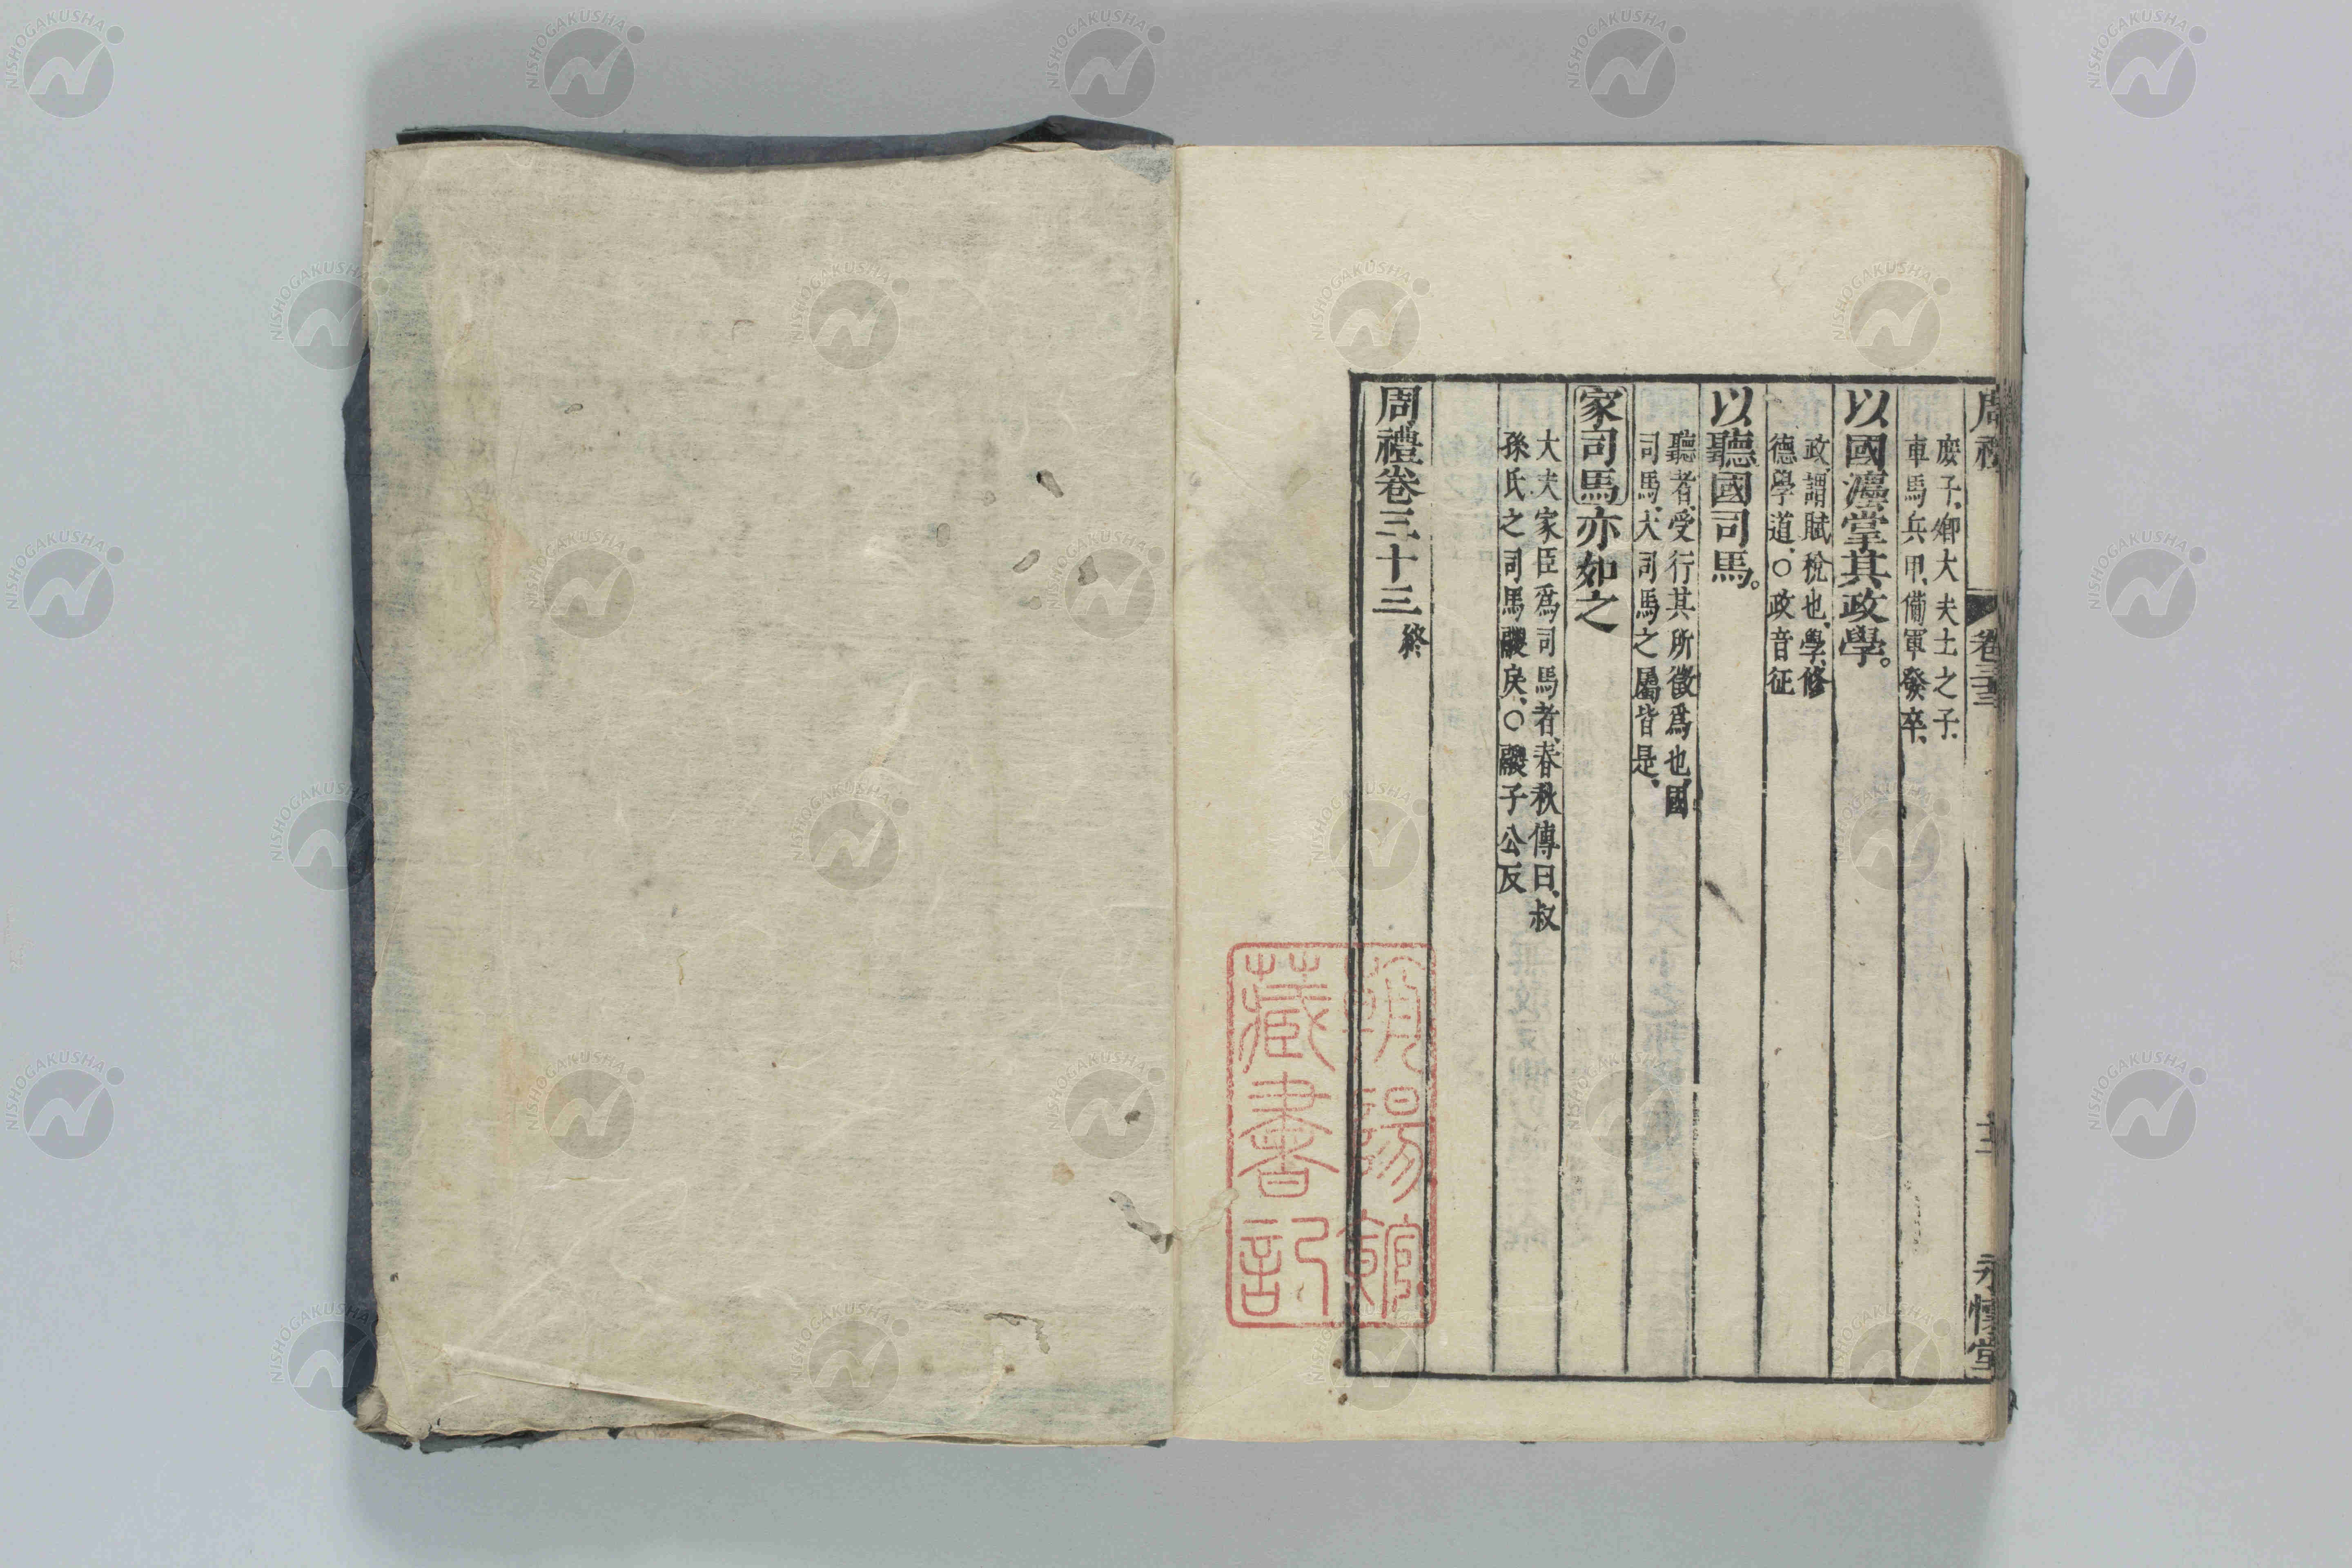 周禮
卷三十三
十三
永懷堂
庶子、卿大夫士之子、
車馬兵甲、備軍發卒、
以國灋掌其政學。
政、謂賦稅也、學、修
德學道、○政音征
以聽國司馬。
聽者、受行其所徵爲也、國
司馬、大司馬之屬皆是、
家司馬亦如之
大夫家臣爲司馬者、春秋傳曰、叔
孫氏之司馬鬷戾、○鬷子公反
周禮卷三十三終
順陽館
藏書記
NISHOGAKUSHA